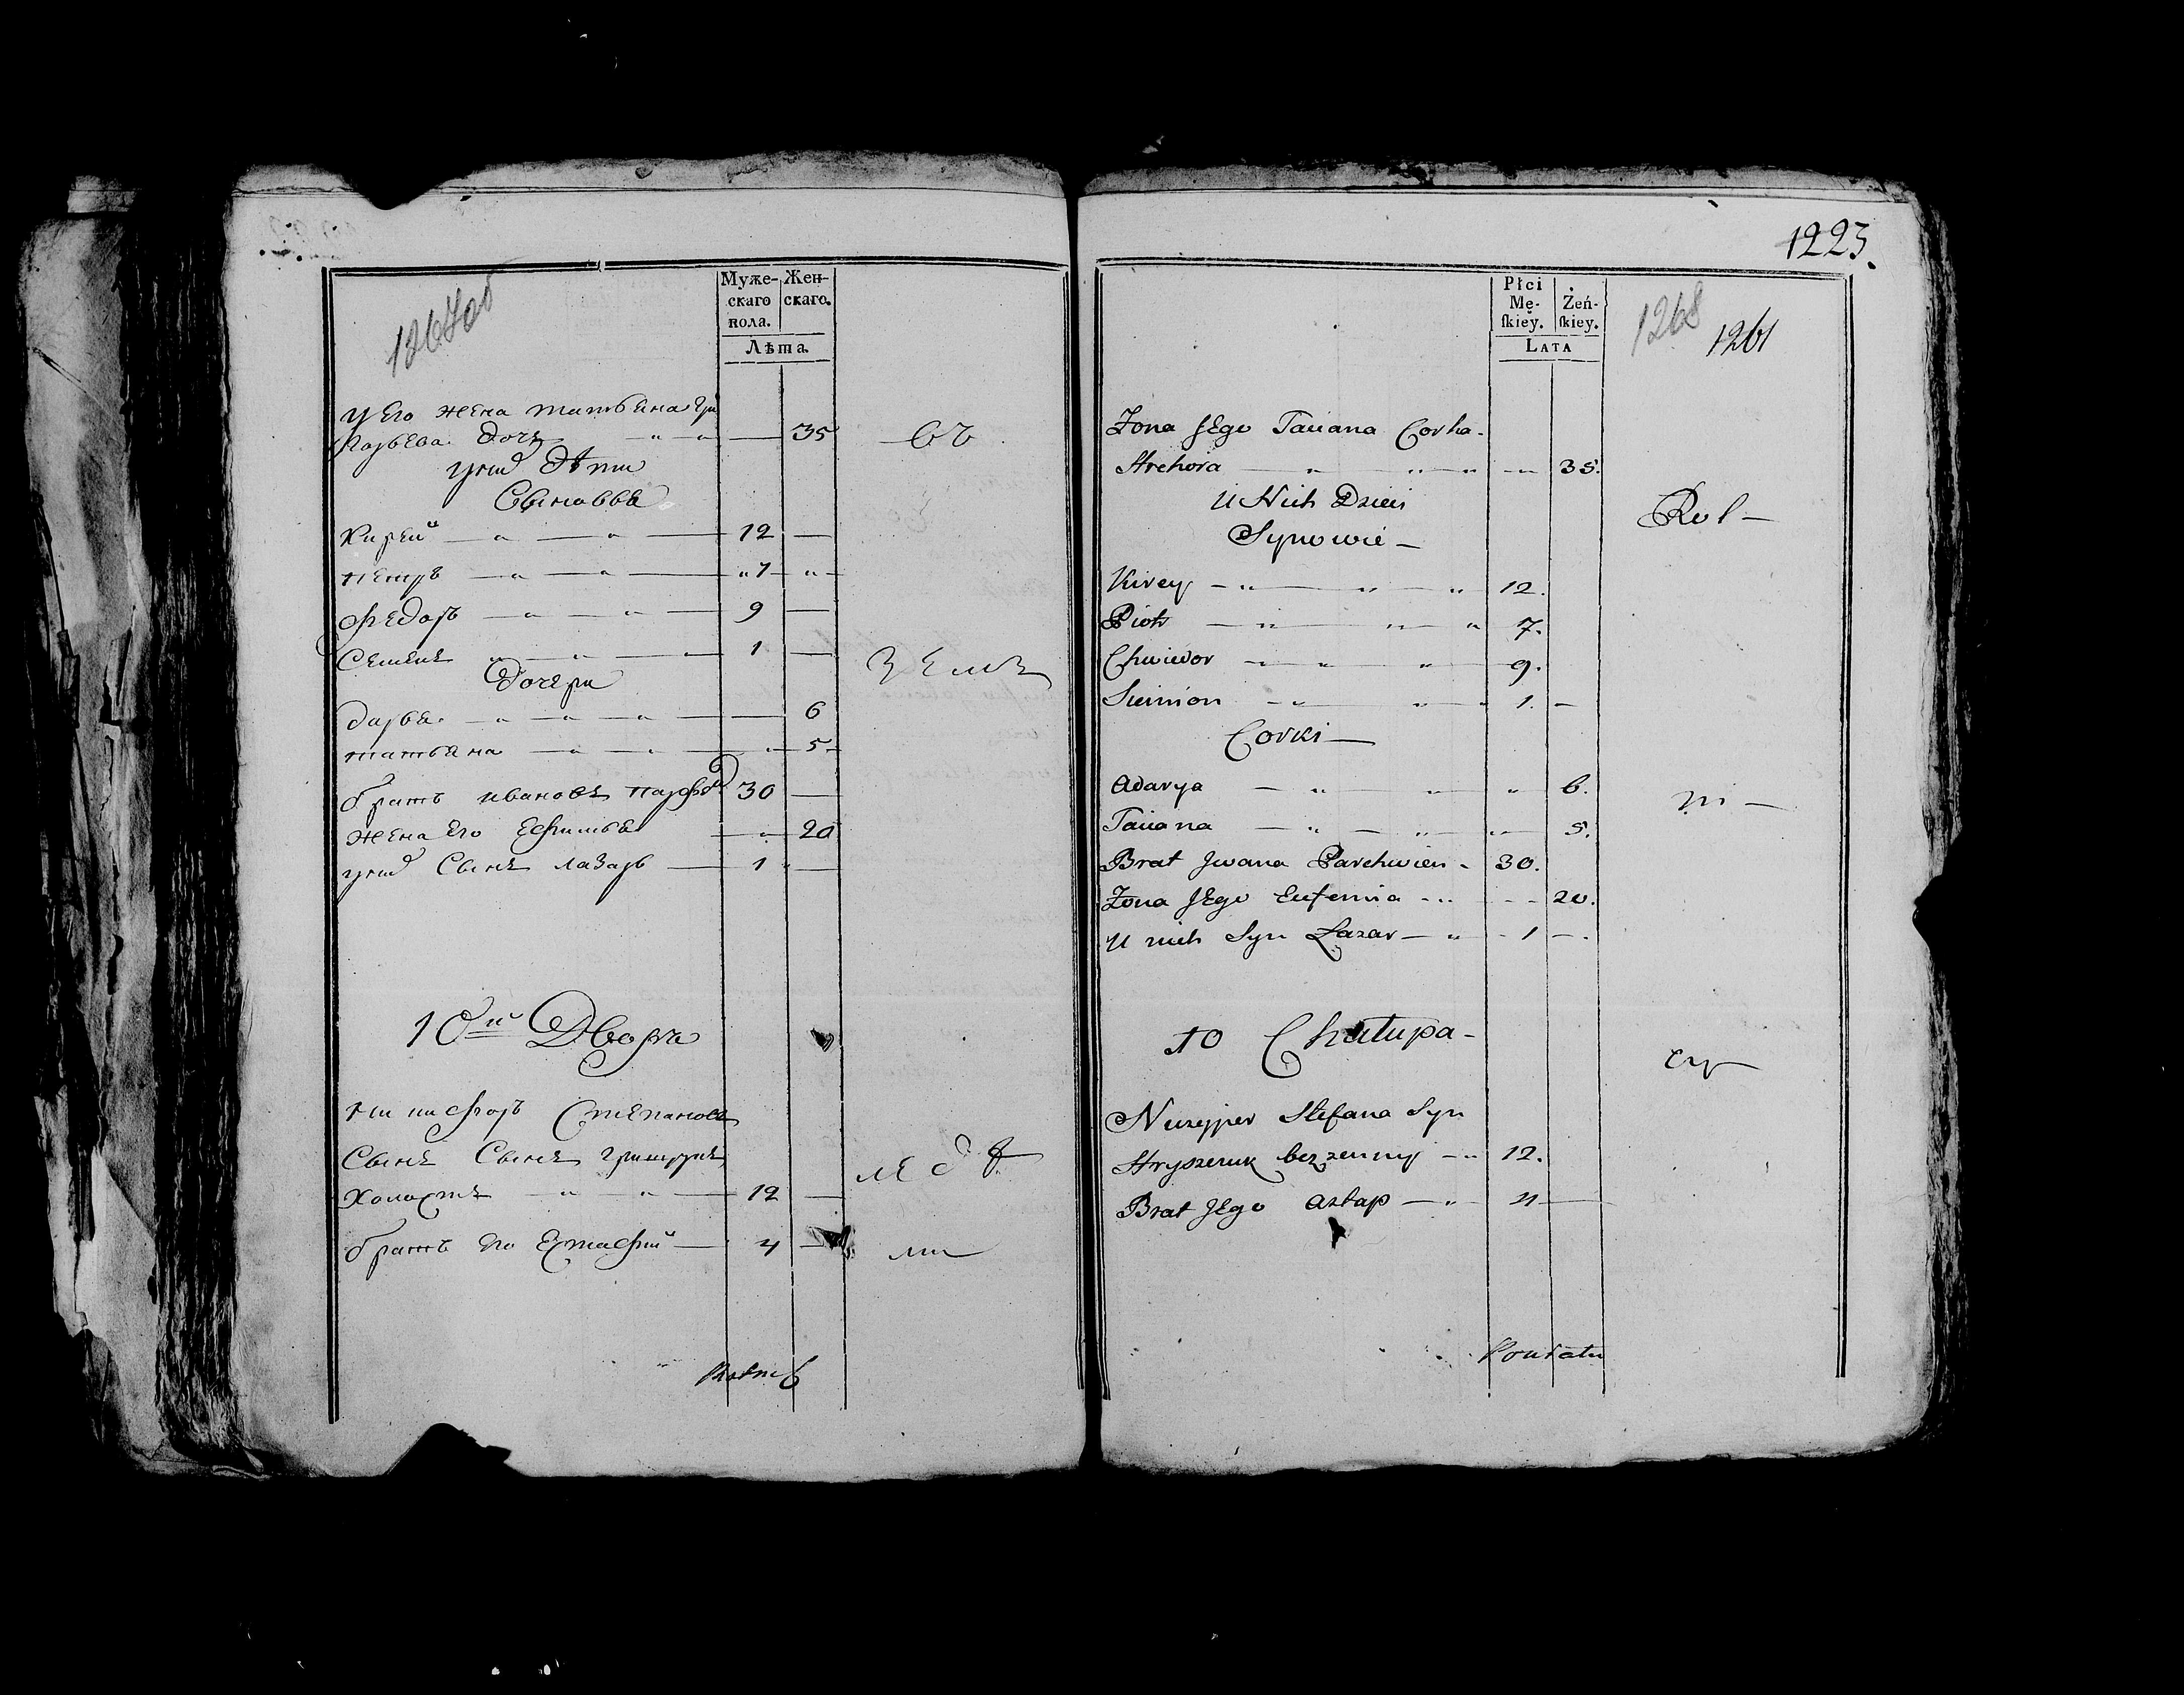 1267об
Муже-
скаго
пола.
Жен-
скаго.
Лѣта.
у Его жена татьяна гри
горьева дочь 35
въ
у них дѣти
Сыновья
Кирей 12
петръ 7
Федоръ 9
Семенъ 1
земл
дочери
дарья 6
татьяна 5
братъ ивановъ парфен 30
жена Его Ефимья 20
у них Сынъ лазарь 1
10й Дворъ
никифоръ Степановъ
Сынъ Сынъ гришукъ
Холостъ 12
лед
братъ Его Естафий 4
ли
1223.
Płci
Mę-
ſkiey.
Żeń-
ſkiey.
Lata
1268
1261
Żona JEgo Taciana Corka
Hrehora 35.
U Nich Dzieci
Rol-
Synowie
Kirey 12.
Piotr 7.
Chwiedor 9.
Siemion 1.
Corki
Adarya 6.
ni
Taciana 5.
Brat Jwana Parchwien 30.
Żona JEgo Eufemia 20.
U nich Syn Łazar 1
10 Chałupa
cy
Stefana Syn
Hryszczuk bezżenny 12.
Brat JEgo Astap 4